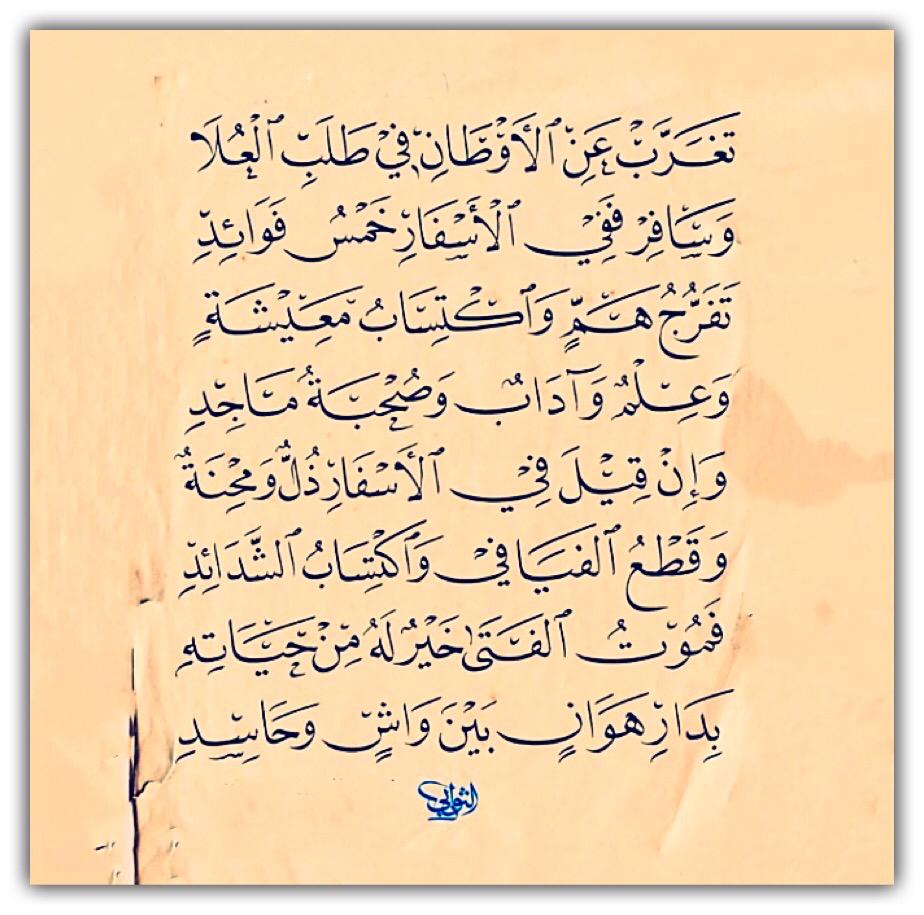 تَغَرَّبْ عَنِ ٱلأَوْطَانِ فِيْ طَلَبِ ٱلْعُلَا
وَسَافِرْ فَفِيْ ٱلْأَسْفَارِ خَمْسُ فَوَائِدِ
تَفَرُّجُ هَمٍّ وَٱكْتِسَابُ مَعِيْشَةٍ
وَعِلْمٌ وَآدَابٌ وَصُحْبَةُ مَاجِدِ
وَإِنْ قِيْلَ فِيْ ٱلأَسْفَارِ ذُلٌّ وَمِحْنَةٌ
وَقَطْعُ ٱلفَيَافِيْ وَٱكْتِسَابُ ٱلشَّدَائِدِ
فَمُوْتُ ٱلفَتَىٰ خَيْرٌ لَهُ مِنْ حَيَاتِهِ
بِدَارِ هَوَانٍ بَيْنَ وَاشٍ وَحَاسِدِ